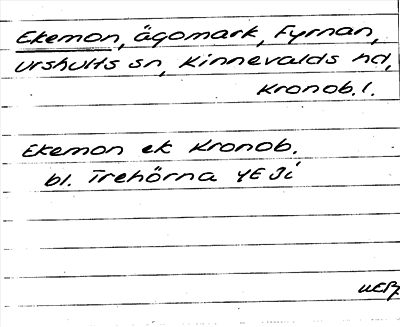 Ekemon, ägomark, Fyrnan,
Urshults sn, Kinnevalds hd,
Kronob. l.
Ekemon ek Kronob.
bl. Trehörna YE Ji